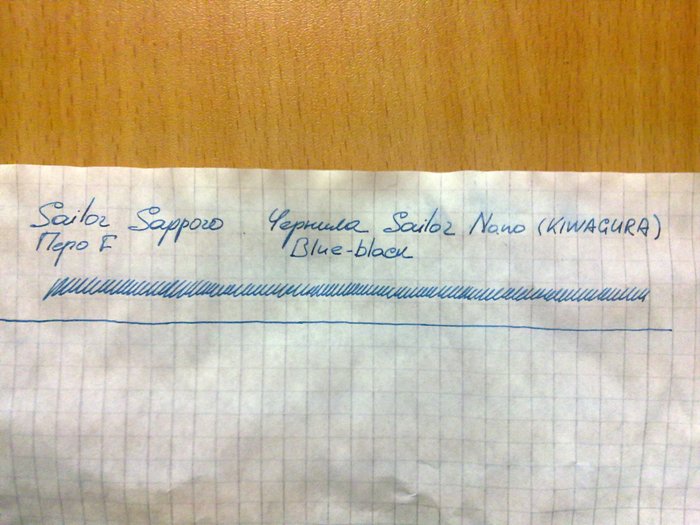 Sailor Sapporo Чернила Sailor Nano (KIWAGURA)
Перо F Blue-black